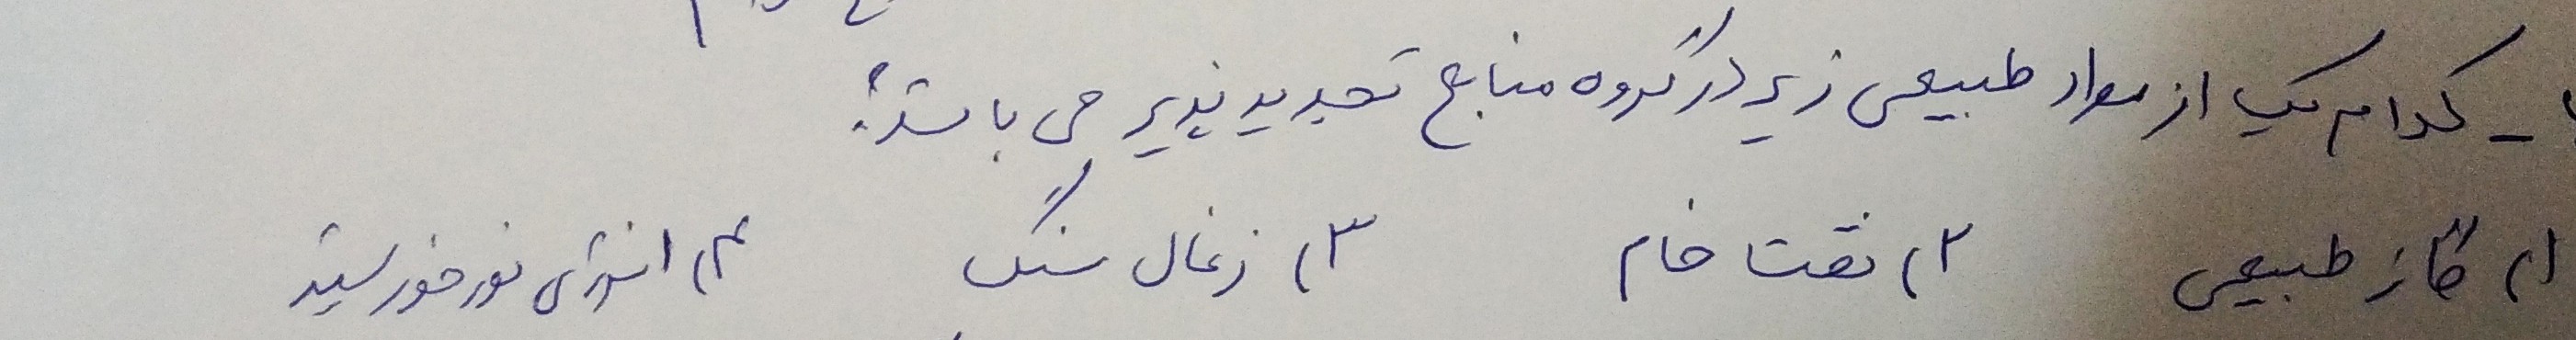 ـ کدام یک از مواد طبیعی زیر در گروه منابع تجدید پذیر می باشد؟
۱) گاز طبیعی ۲) نفت خام ۳) زغال سنگ ۴) انرژی نور خورشید